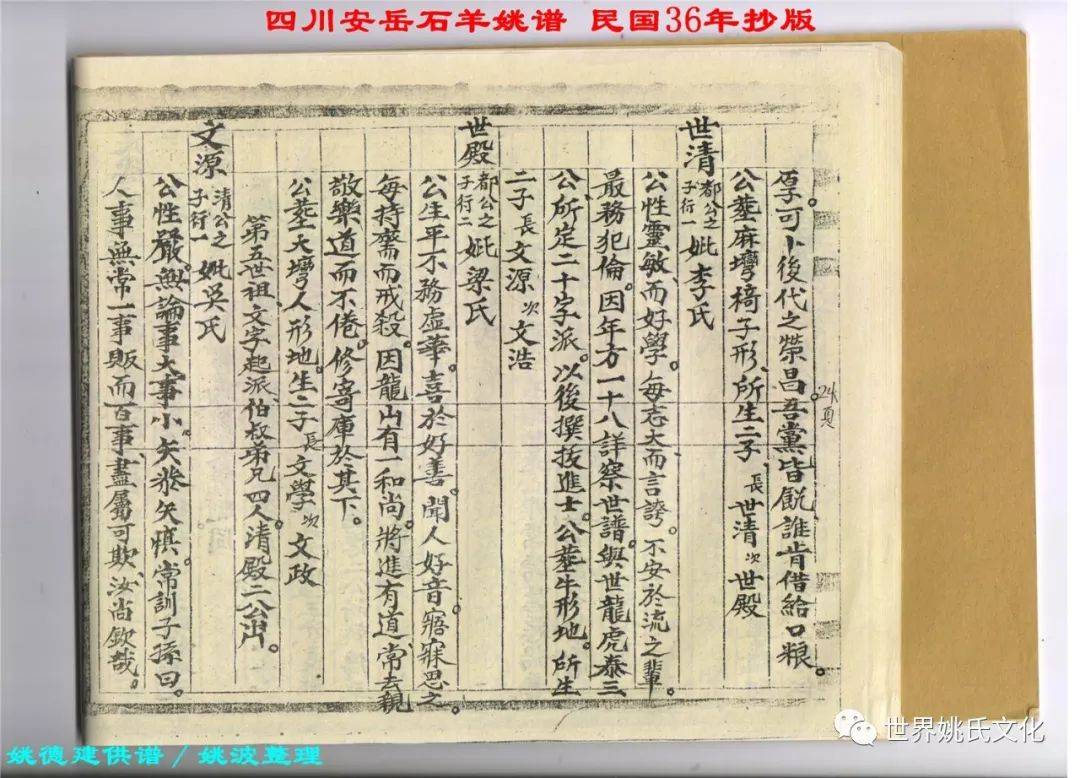 四川安岳石羊姚谱 民国36年抄版
厚可卜後代之榮昌。吾黨皆飢誰肯借給口粮。
公塟麻塆椅子形、所生二子 長 世清 次 世殿
世清 都公之子行一 妣李氏
公性靈敏、而好學。每志大而言誇。不安於流之輩。
最務犯倫。因年方一十八詳察世譜。與世龍虎泰三
公、所定二十字派。以後撰拔進士。公塟牛形地。所生
二子 長 文源 次 文浩
世殿 都公之子行二 妣梁氏
公生平不務虛華。喜於好善。聞人好音寤寐思之。
每持齋而戒殺。因龍山有一和尚。將進有道、常去親
敬樂道而不倦。修寄庫於其下。
公塟大塆人形地。生二子 長 文學 次 文政
第五世祖文字起派、伯叔弟兄四人。清殿二公出。
文源 清公之子行一 妣吳氏
公性嚴。無論事大事小。矢慎。常訓子孫曰。
人事無常一事敗而百事盡屬可欺、汝尚欽哉。
24頁
姚德建供谱/姚波整理
世界姚氏文化